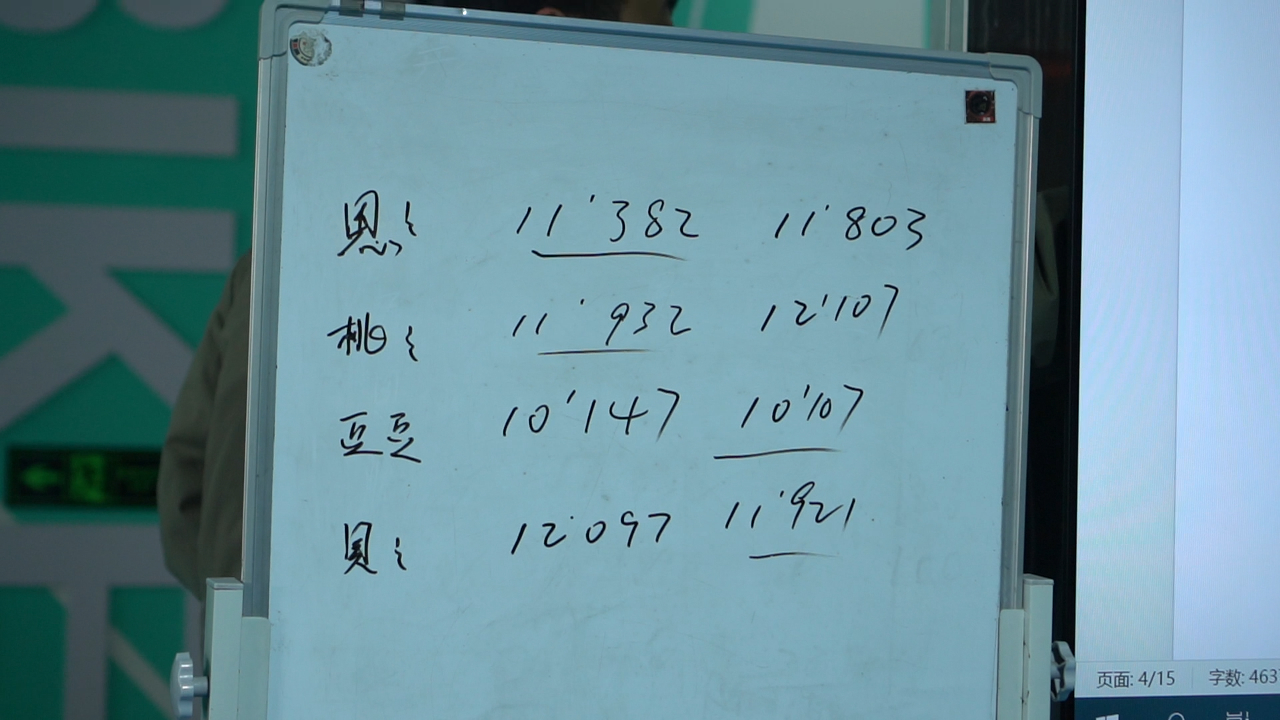 恩々 11'382 11'803
桃々 11'932 12'107
豆豆 10'147 10'107
贝々 12'097 11'921
页面: 4/15 字数: 463